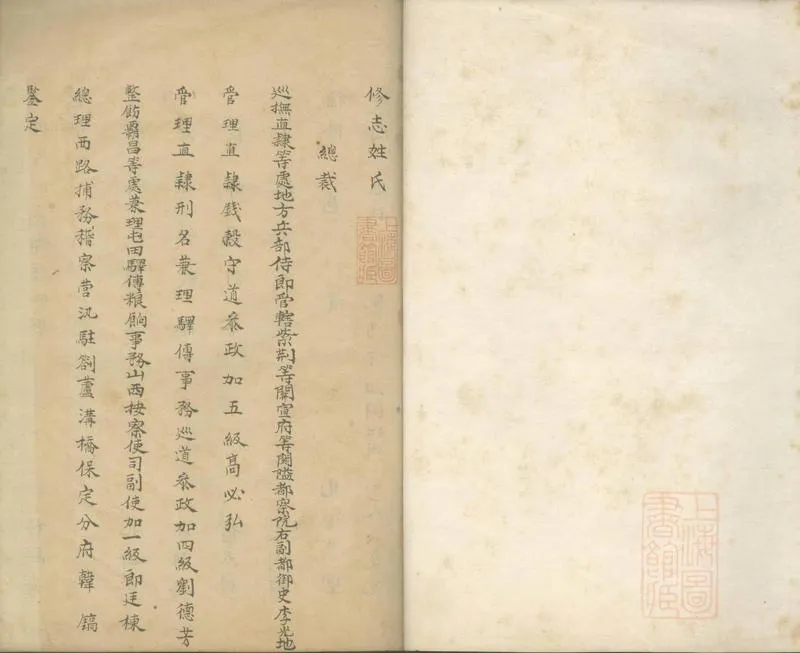 修志姓氏
總裁
巡撫直隸等處地方兵部侍郎管轄紫荊等關宣府等關隘都察院右副都御史李光地
管理直隸錢穀守道叅政加五級高必弘
管理直隸刑名兼理驛傳事務巡道叅政加四級劉德芳
整飭霸昌等處兼理屯田驛傳粮餉事務山西按察使司副使加一級郎廷棟
總理西路捕務稽察營汛駐劄蘆溝橋保定分府韓鎬
鑒定
上海圖書館藏
上海圖書館藏